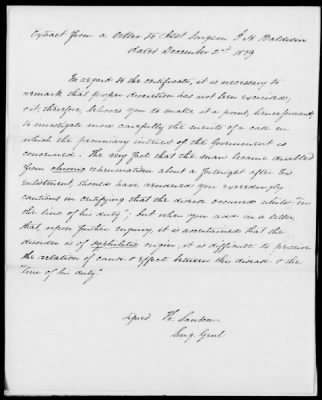 Extract from a letter to Asst Surgeon F. W. Baldwin
dated December 2nd 1839
In regard to the certificate, it is necessary to
remark that proper discretion has not been exercised;
it, therefore, behoves you to make it a point, henceforward,
to investigate more carefully the merits of a case in
which the pecuniary interest of the Government is
concerned. The very fact that the man became disabled
from chronic rheumatism about a fortnight after his
enlistment, should have rendered you exceedingly
cautious in certifying that the disease occurred whilst "in
the line of his duty"; but when you add in a letter
that, upon further enquiry, it is ascertained that the
disorder is of syphilitic origin, it is difficult to perceive
the relation of cause & effect between this disease & the
"line of his duty"
Signed
Surg. Genl.